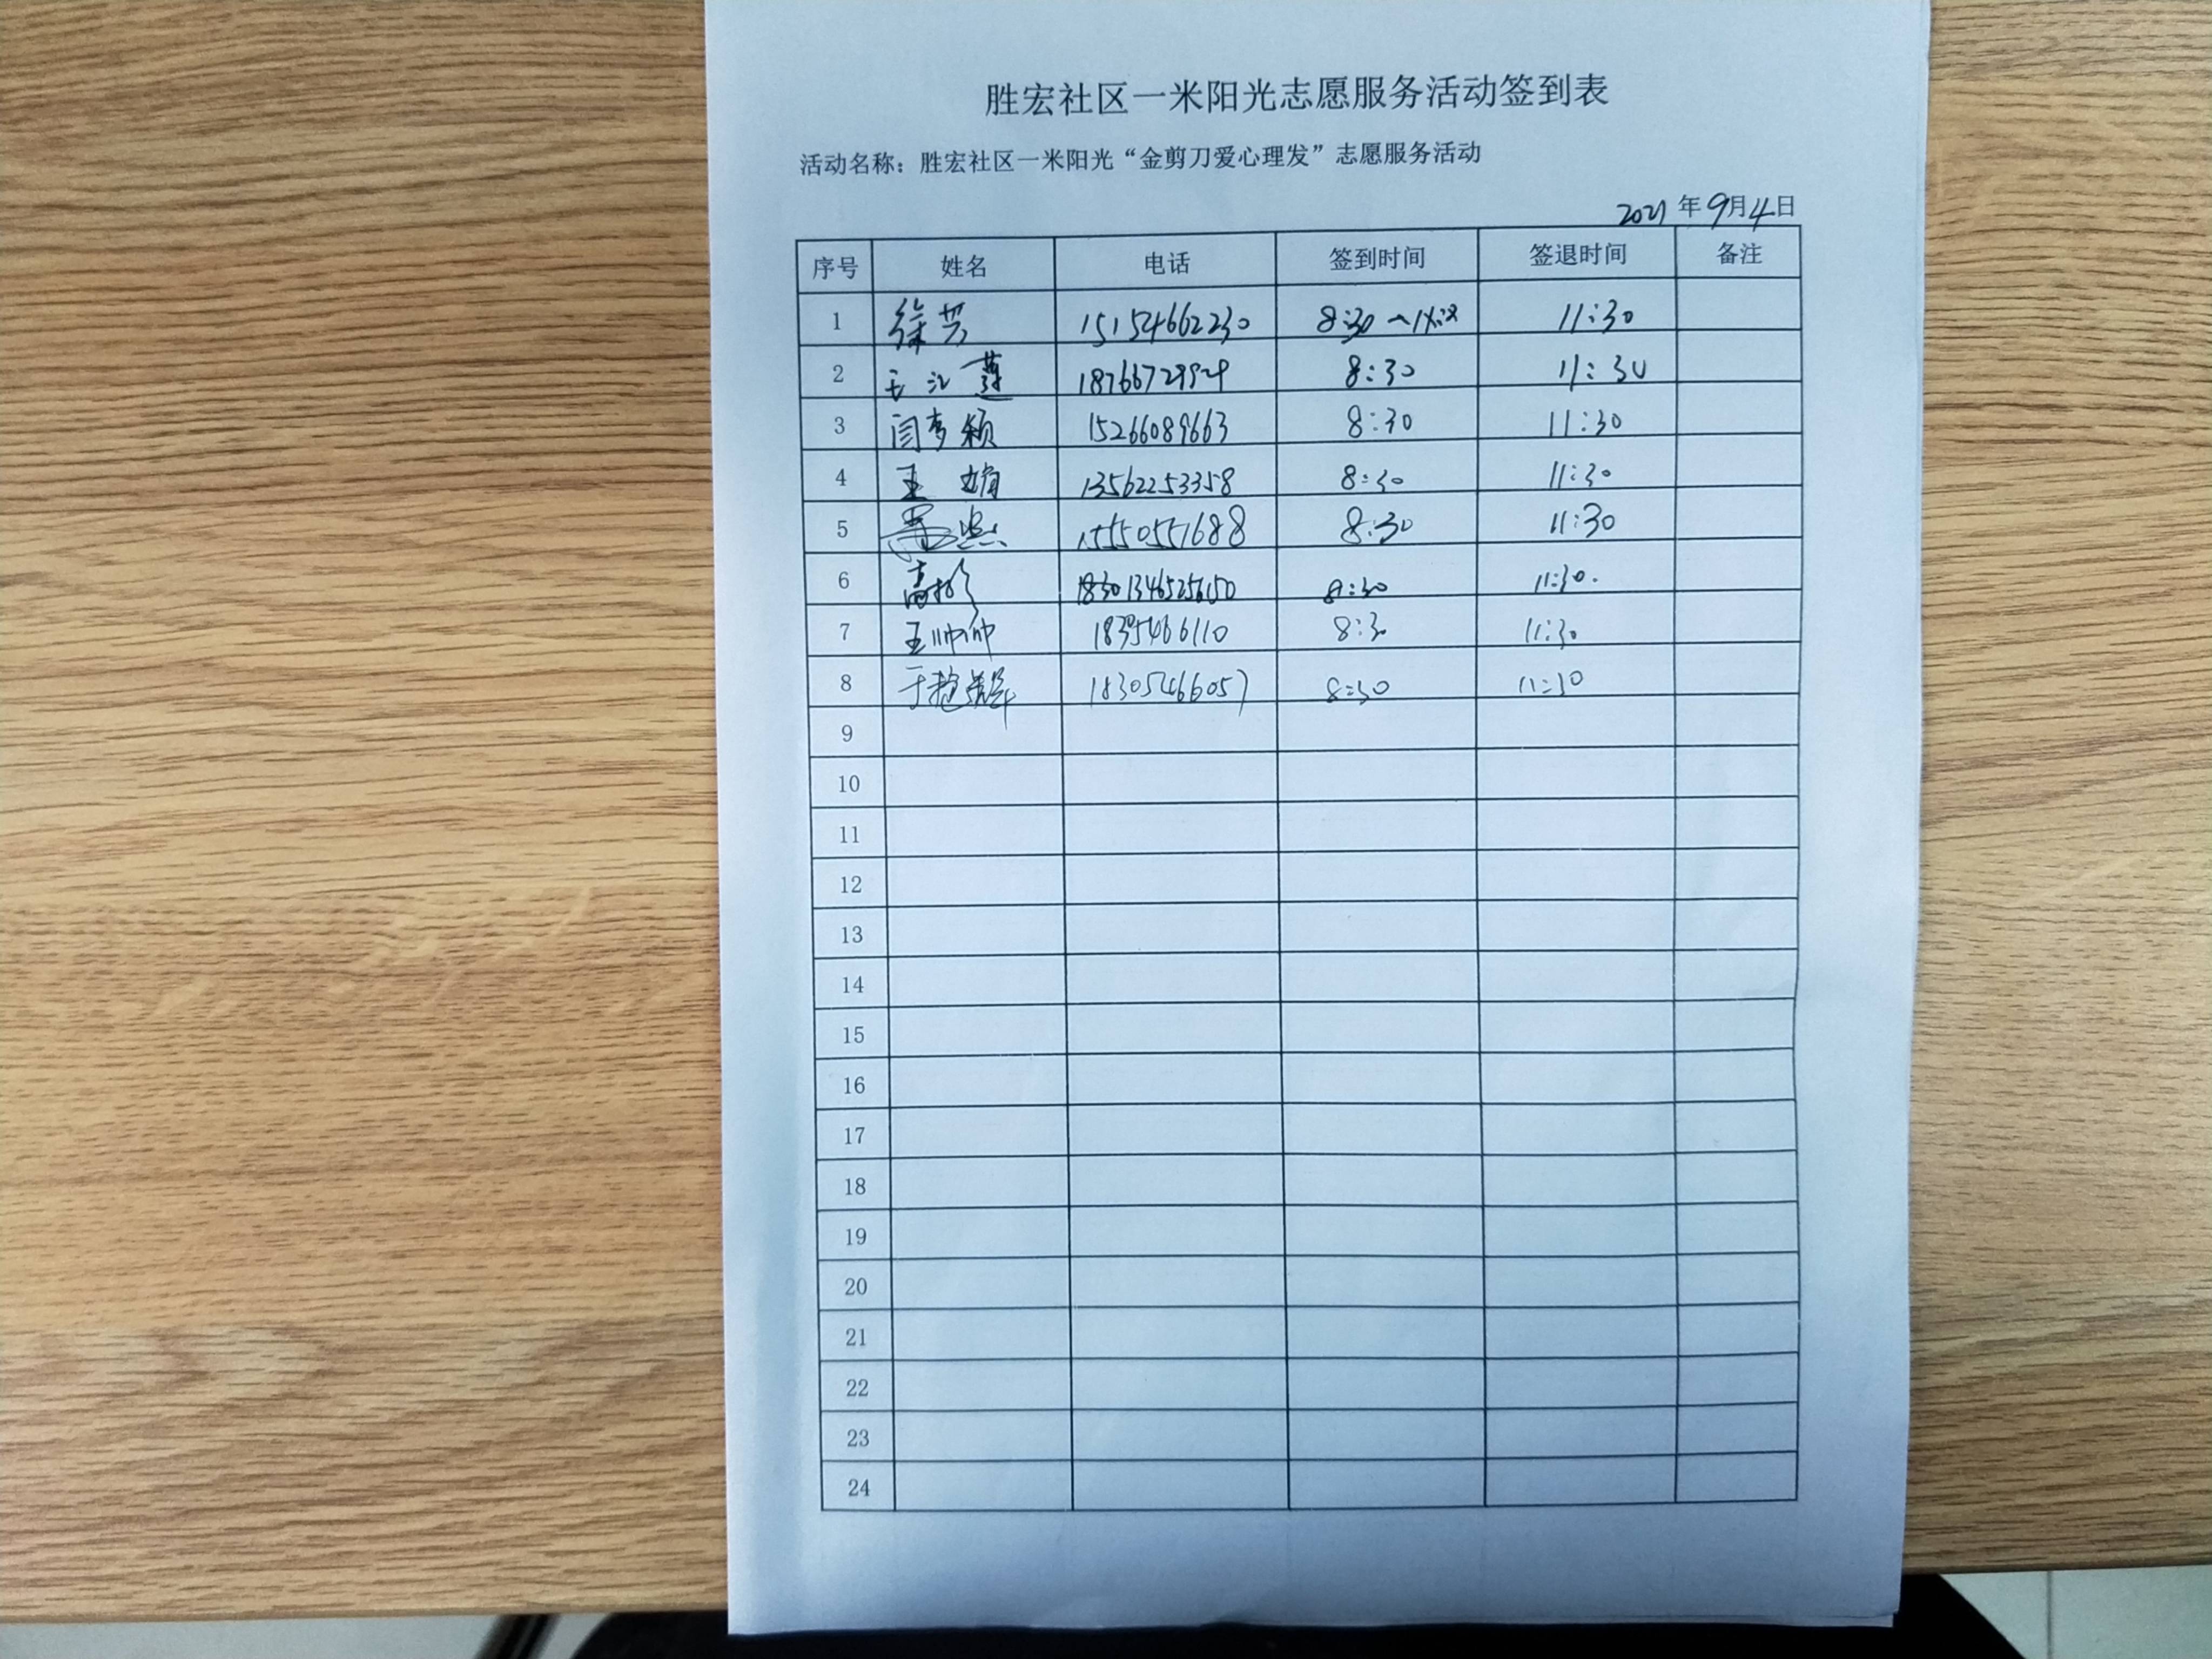 胜宏社区一米阳光志愿服务活动签到表
活动名称：胜宏社区一米阳光“金剪刀爱心理发”志愿服务活动
2021年9月4日
序号 姓名 电话 签到时间 签退时间 备注
1 徐芳 15154662230 8:30 11:30
2 8:30 11:30
3 闫梦颖 15266089663 8:30 11:30
4 王娟 13562253358 8:30 11:30
5 15550551688 8:30 11:30
6 8:30 11:30.
7 王帅帅 18395466110 8:30 11:30
8 于 18305466057 8:30 11:30
9
10
11
12
13
14
15
16
17
18
19
20
21
22
23
24